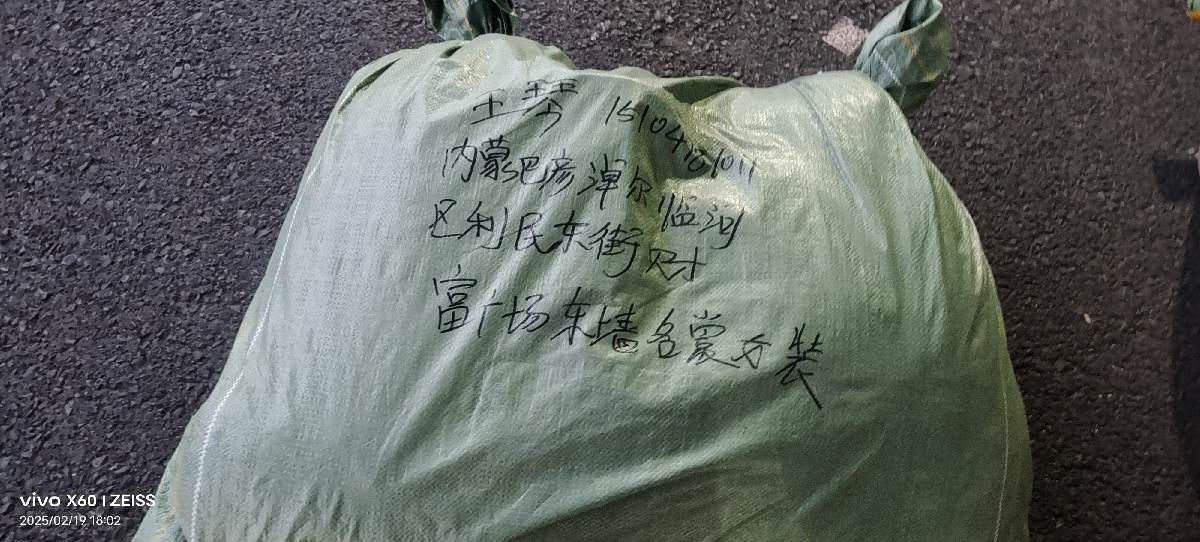 王琴 15104781011
内蒙巴彦淖尔临河
区利民东街财
富广场东墙名裳女装
vivo X60 | ZEISS
2025/02/19 18:02